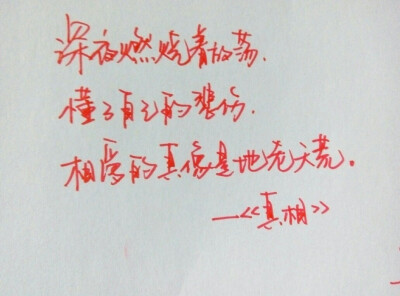 深夜燃烧着放荡.
懂了自己的悲伤.
相爱的真像是地老天荒。
—《真相》